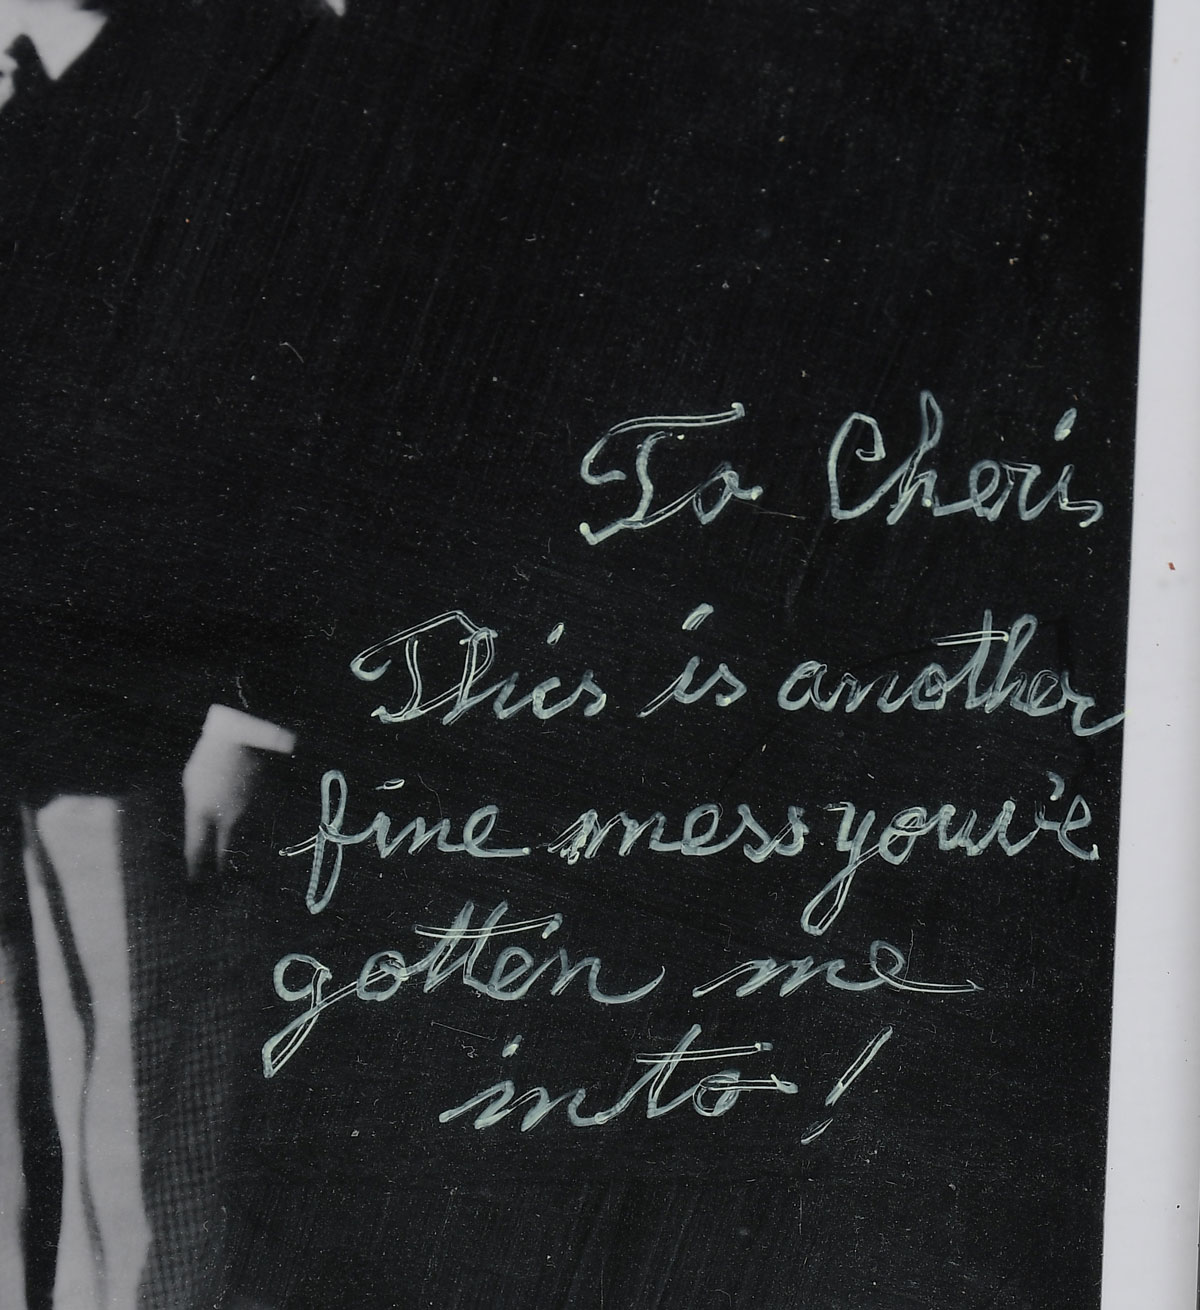 To Cheris
This is another
fine mess you've
gotten me
into!